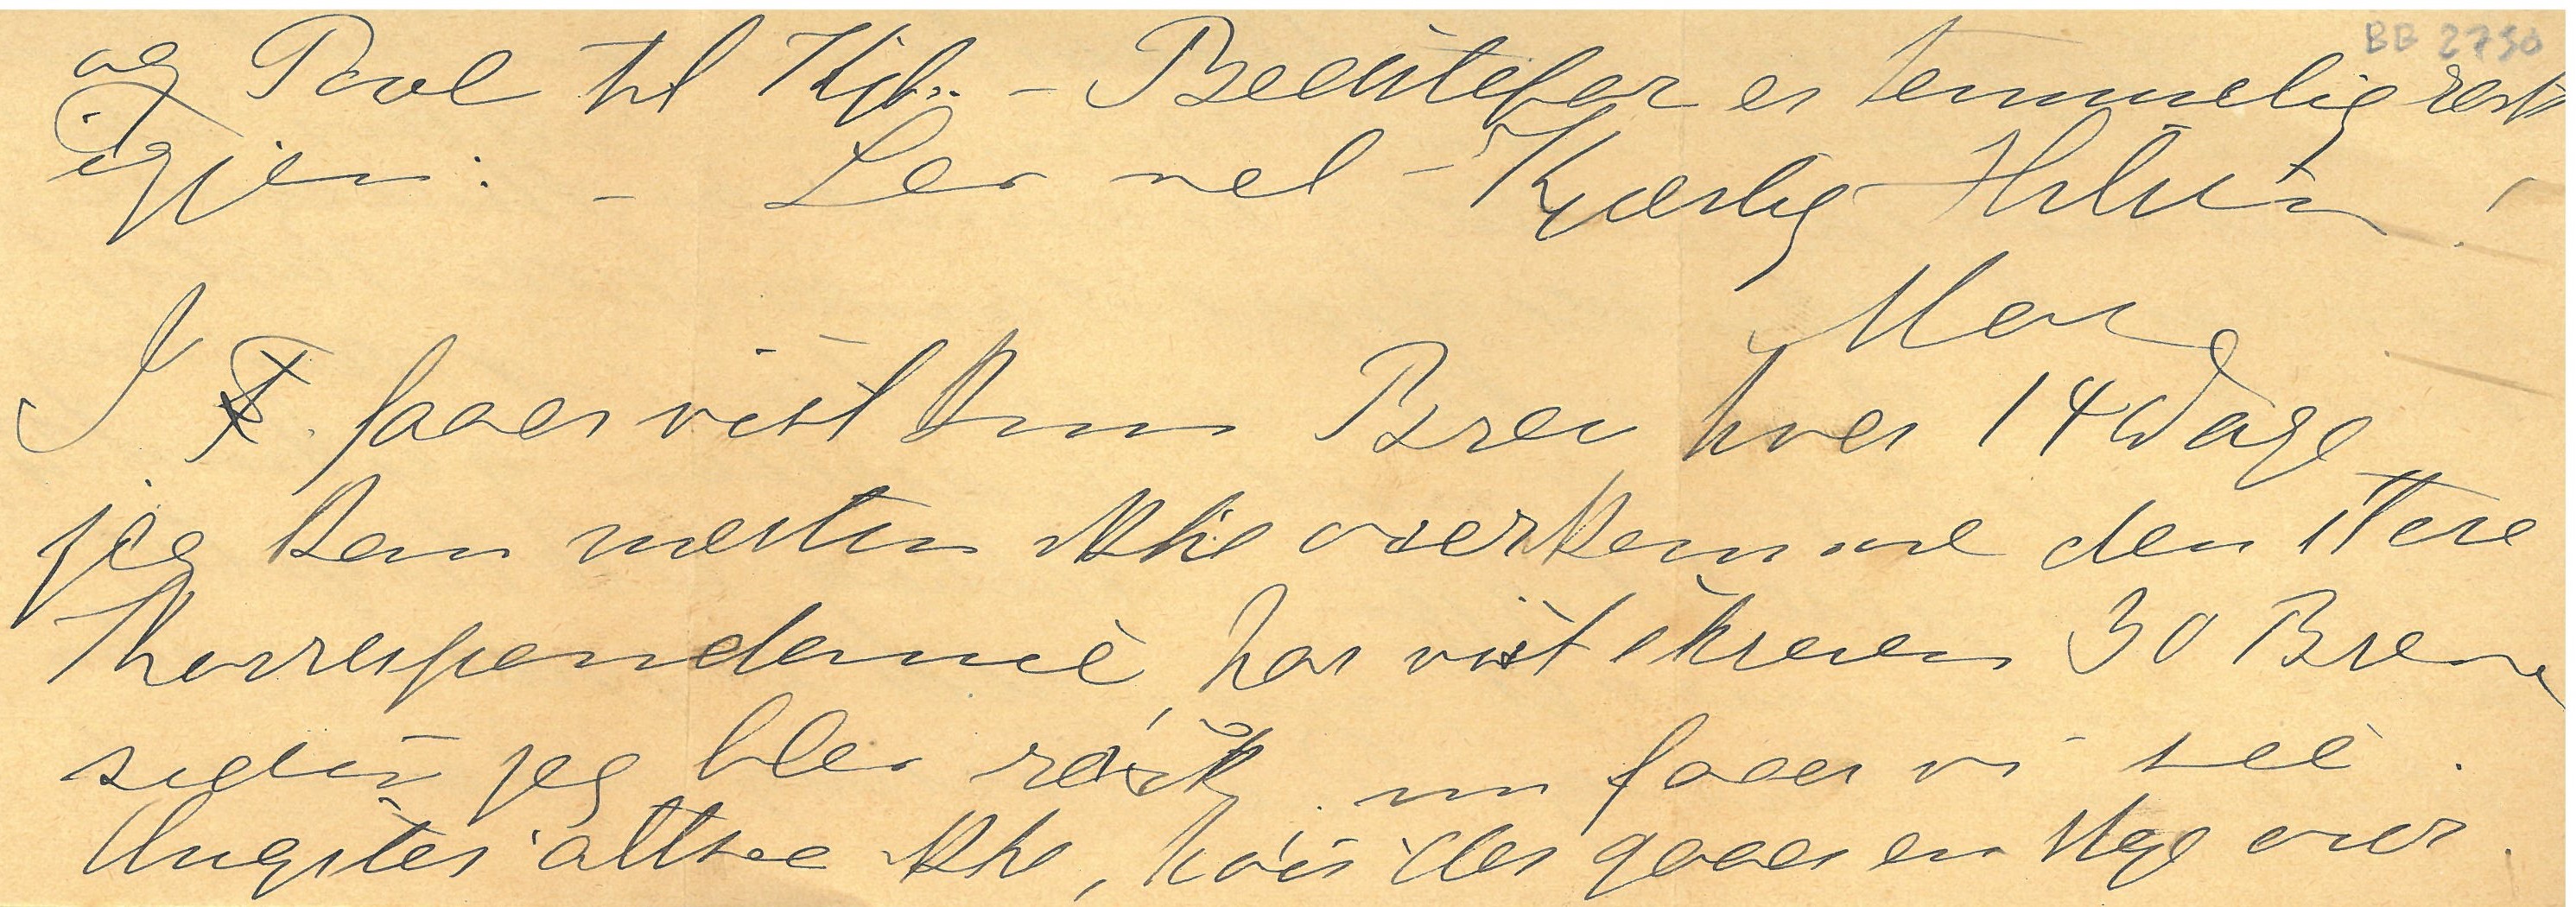 BB 2730
og Poul til Kjbh. - Bedstefar er temmelig rask
igjen. - Lev vel - Kjærlig Hilsen!
Mor
I faaer vist kun Brev hver 14 Dage
jeg kan næsten ikke overkomme den store
Korrespondance, har vist skreven 30 Breve
siden jeg blev rask, nu faaer vi see.
Ængstes altsaa ikke, hvis der gaaer en Uge over.